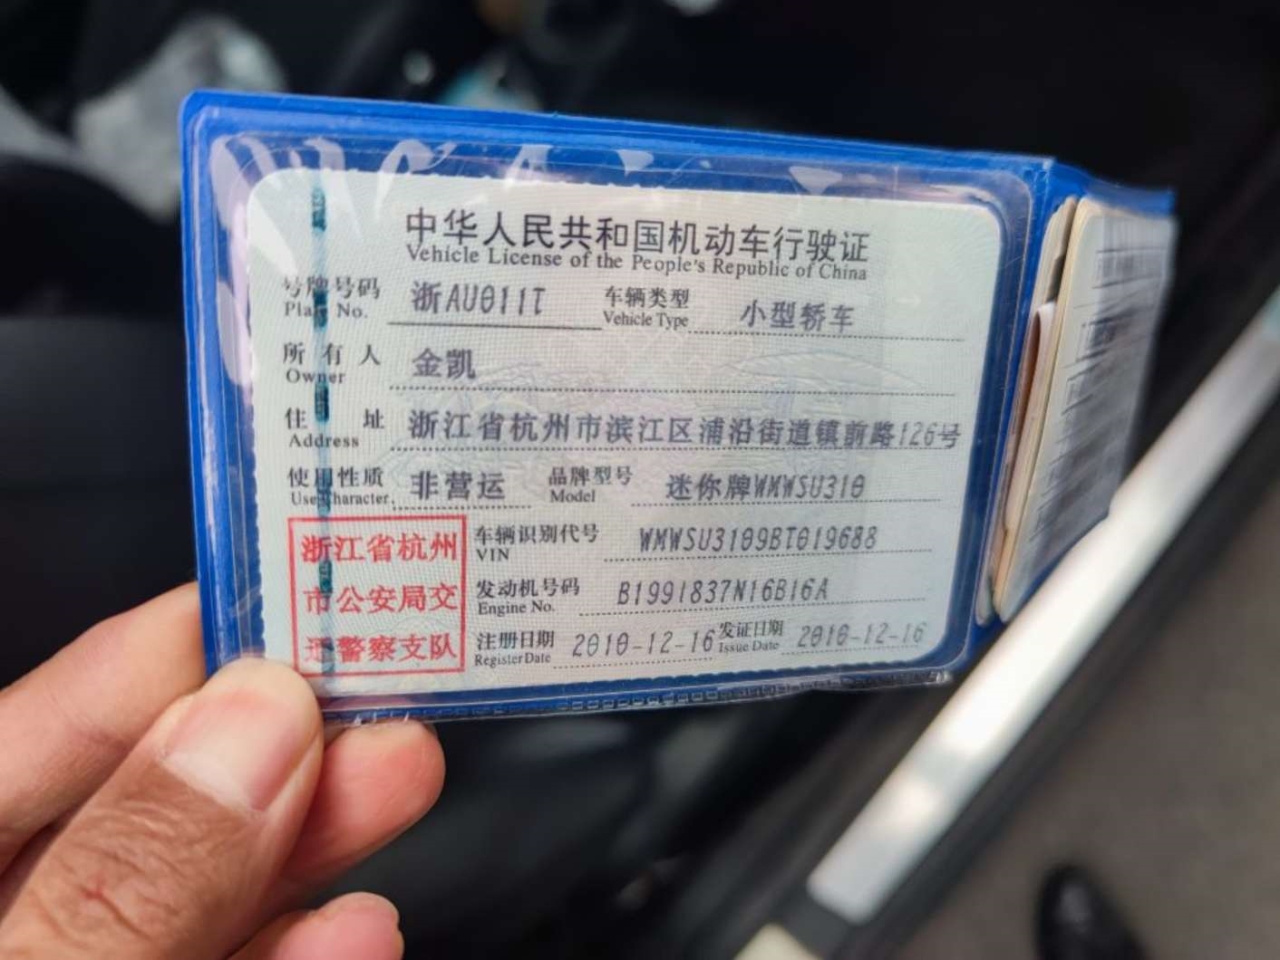 中华人民共和国机动车行驶证
Vehicle License of the People's Republic of China
号牌号码 浙AU011T 车辆类型 小型轿车
Plate No. Vehicle Type
所有人 金凯
Owner
住址 浙江省杭州市滨江区浦沿街道镇前路126号
Address
使用性质 非营运 品牌型号 迷你牌WMWSU310
Use Character Model
浙江省杭州
市公安局交
通警察支队
车辆识别代号 WMWSU3109BT019688
VIN
发动机号码 B1991837N16B16A
Engine No.
注册日期 2010-12-16 发证日期 2010-12-16
Register Date Issue Date